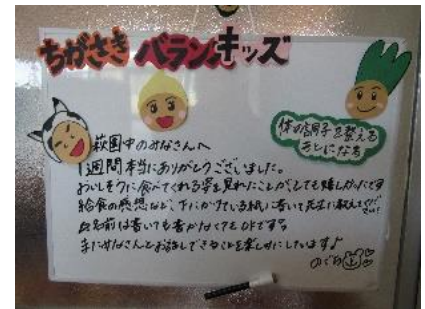 ちがさき バランスキッズ
体の調子を整える
もとになる
萩園中のみなさんへ
1週間本当にありがとうございました。
おいしそうに食べてくれる姿を見れたことが、とても嬉しかったです
給食の感想など、下にかけている紙に書いて先生に教えてください
お名前は書いても書かなくてもOKです。
またみなさんとお話しできることを楽しみにしています♪